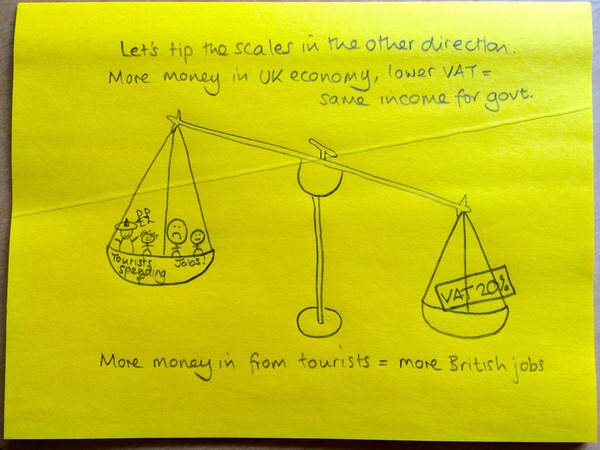 Let's tip the scales in the other direction.
More money in UK economy, lower VAT =
same income for govt.
££
££
Tourists Jobs!
spending
VAT 20%
More money in from tourists = more British jobs